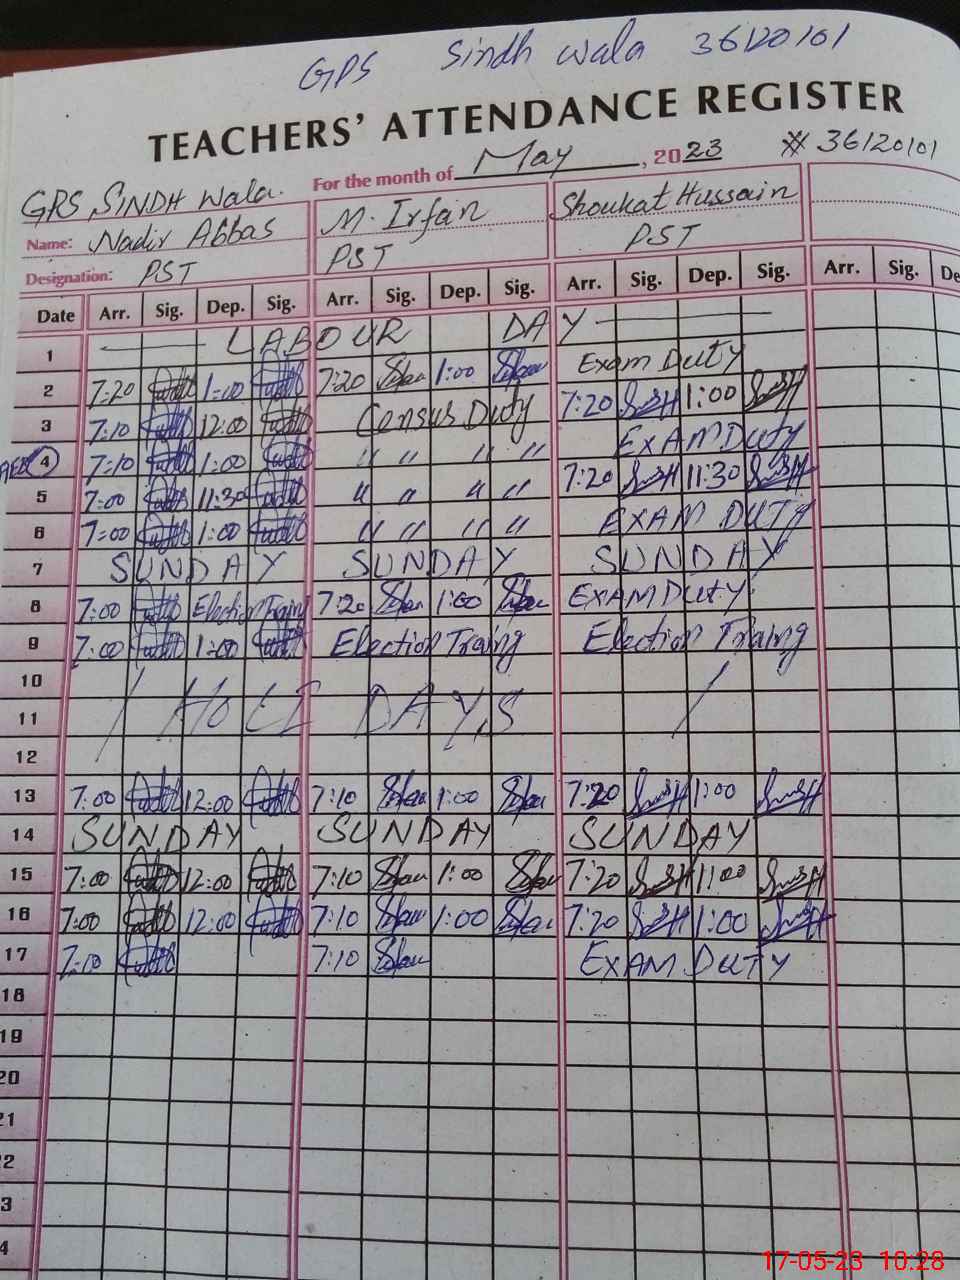 GPS Sindh Wala 36120101
TEACHERS' ATTENDANCE REGISTER
For the month of May, 2023 36120101
GRS SINDH Wala.
Name: Nadir Abbas M. Irfan Shoukat Hussain
Designation: PST PST PST
Date Arr. Sig. Dep. Sig. Arr. Sig. Dep. Sig. Arr. Sig. Dep. Sig. Arr. Sig. De
1 LABOUR DAY
2 7:20 1:00 7:20 1:00 Exam Duty
3 7:10 12:00 Census Duty 7:20 1:00
4 7:10 1:00 " " " " EXAM Duty
5 7:00 11:30 " " " " 7:20 11:30
6 7:00 1:00 " " " " EXAM DUTY
7 SUNDAY SUNDAY SUNDAY
8 7:00 Election Traing 7:20 1:00 EXAM Duty
9 7:00 1:00 Election Traing Election Traing
10
11 HOLI DAYS
12
13 7:00 12:00 7:10 1:00 7:20 1:00
14 SUNDAY SUNDAY SUNDAY
15 7:00 12:00 7:10 1:00 7:20 1:00
16 7:00 12:00 7:10 1:00 7:20 1:00
17 7:10 7:10 EXAM DUTY
18
19
20
21
22
3
4
17-05-23 10:28